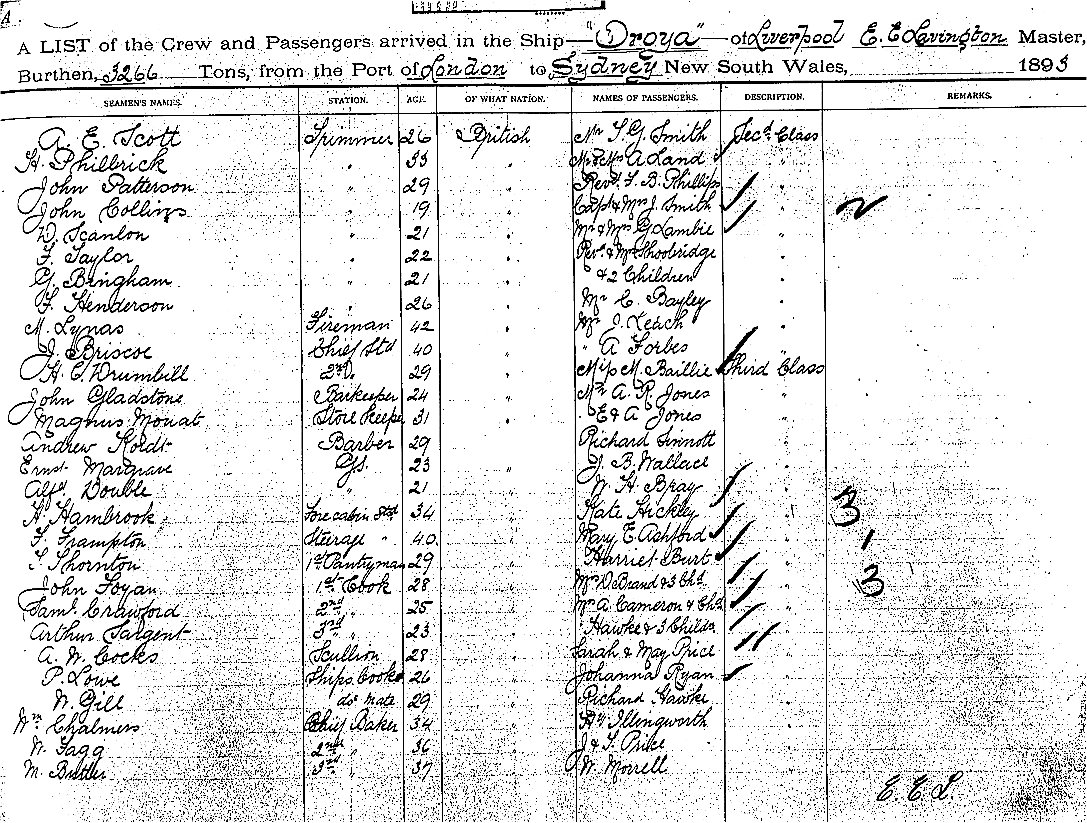 A LIST of the Crew and Passengers arrived in the Ship—"Oroya"—of Liverpool E. E. Lavington Master,
Burthen, 3266 Tons, from the Port of London to Sydney New South Wales, 1893
SEAMEN'S NAMES. STATION. AGE. OF WHAT NATION. NAMES OF PASSENGERS. DESCRIPTION. REMARKS.
A. E. Scott Trimmer 26 British Mr T. G. Smith Secd Class
H. Philbrick " 33 " Mr & Mrs A Land "
John Patterson " 29 " Revd. F. B. Phillips "
John Collings " 19 " Capt & Mrs J. Smith "
W. Scanlon " 21 " Mr & Mrs G Lambie "
F. Taylor " 22 " Revd. & Mrs Shoobridge "
G. Bingham " 21 " & 2 Children "
F. Henderson " 26 " Mr C. Bayley "
M. Lynas Fireman 42 " Mr J. Leach "
J. Briscoe Chief Std 40 " " A Forbes "
H. C. Drumbill 2nd. 29 Miss M. Baillie Third Class
John Gladstone Barkeeper 24 " Mr A. R. Jones "
Magnus Mouat Store Keeper 31 " " E & A Jones "
Andrew Barber 29 Richard Sinnott
Ernst. Margrave G.S. 23 " J. B. Wallace "
Alfd Double " 21 W. H. Bray "
H. Hambrook Fore cabin Std 34 " Kate Hickley " 3
F. Frampton Sterage " 40 " Mary E Ashford " 1
T. Thornton 1st Pantryman 29 " Harriet Burt "
John Foyan 1st Cook 28 " Mrs D. Brand & 3 Chd. " 3
Saml. Crawford 2nd " 25 " Mrs A. Cameron & Chd. "
Arthur Sargent 3rd " 23 " Hawke & 3 Childn "
A. W. Cocks Scullion 28 " Sarah & May Price "
P. Lowe Ships Cook 26 " Johanna Ryan "
W. Gill do Mate 29 " Richard Hawke "
Wm Chalmers Chief Baker 34 " Hy Illingworth "
W. Fagg 2nd " 36 " J & F. Price "
M. Butler 3rd " 37 " W. Morrell "
E. E. L.